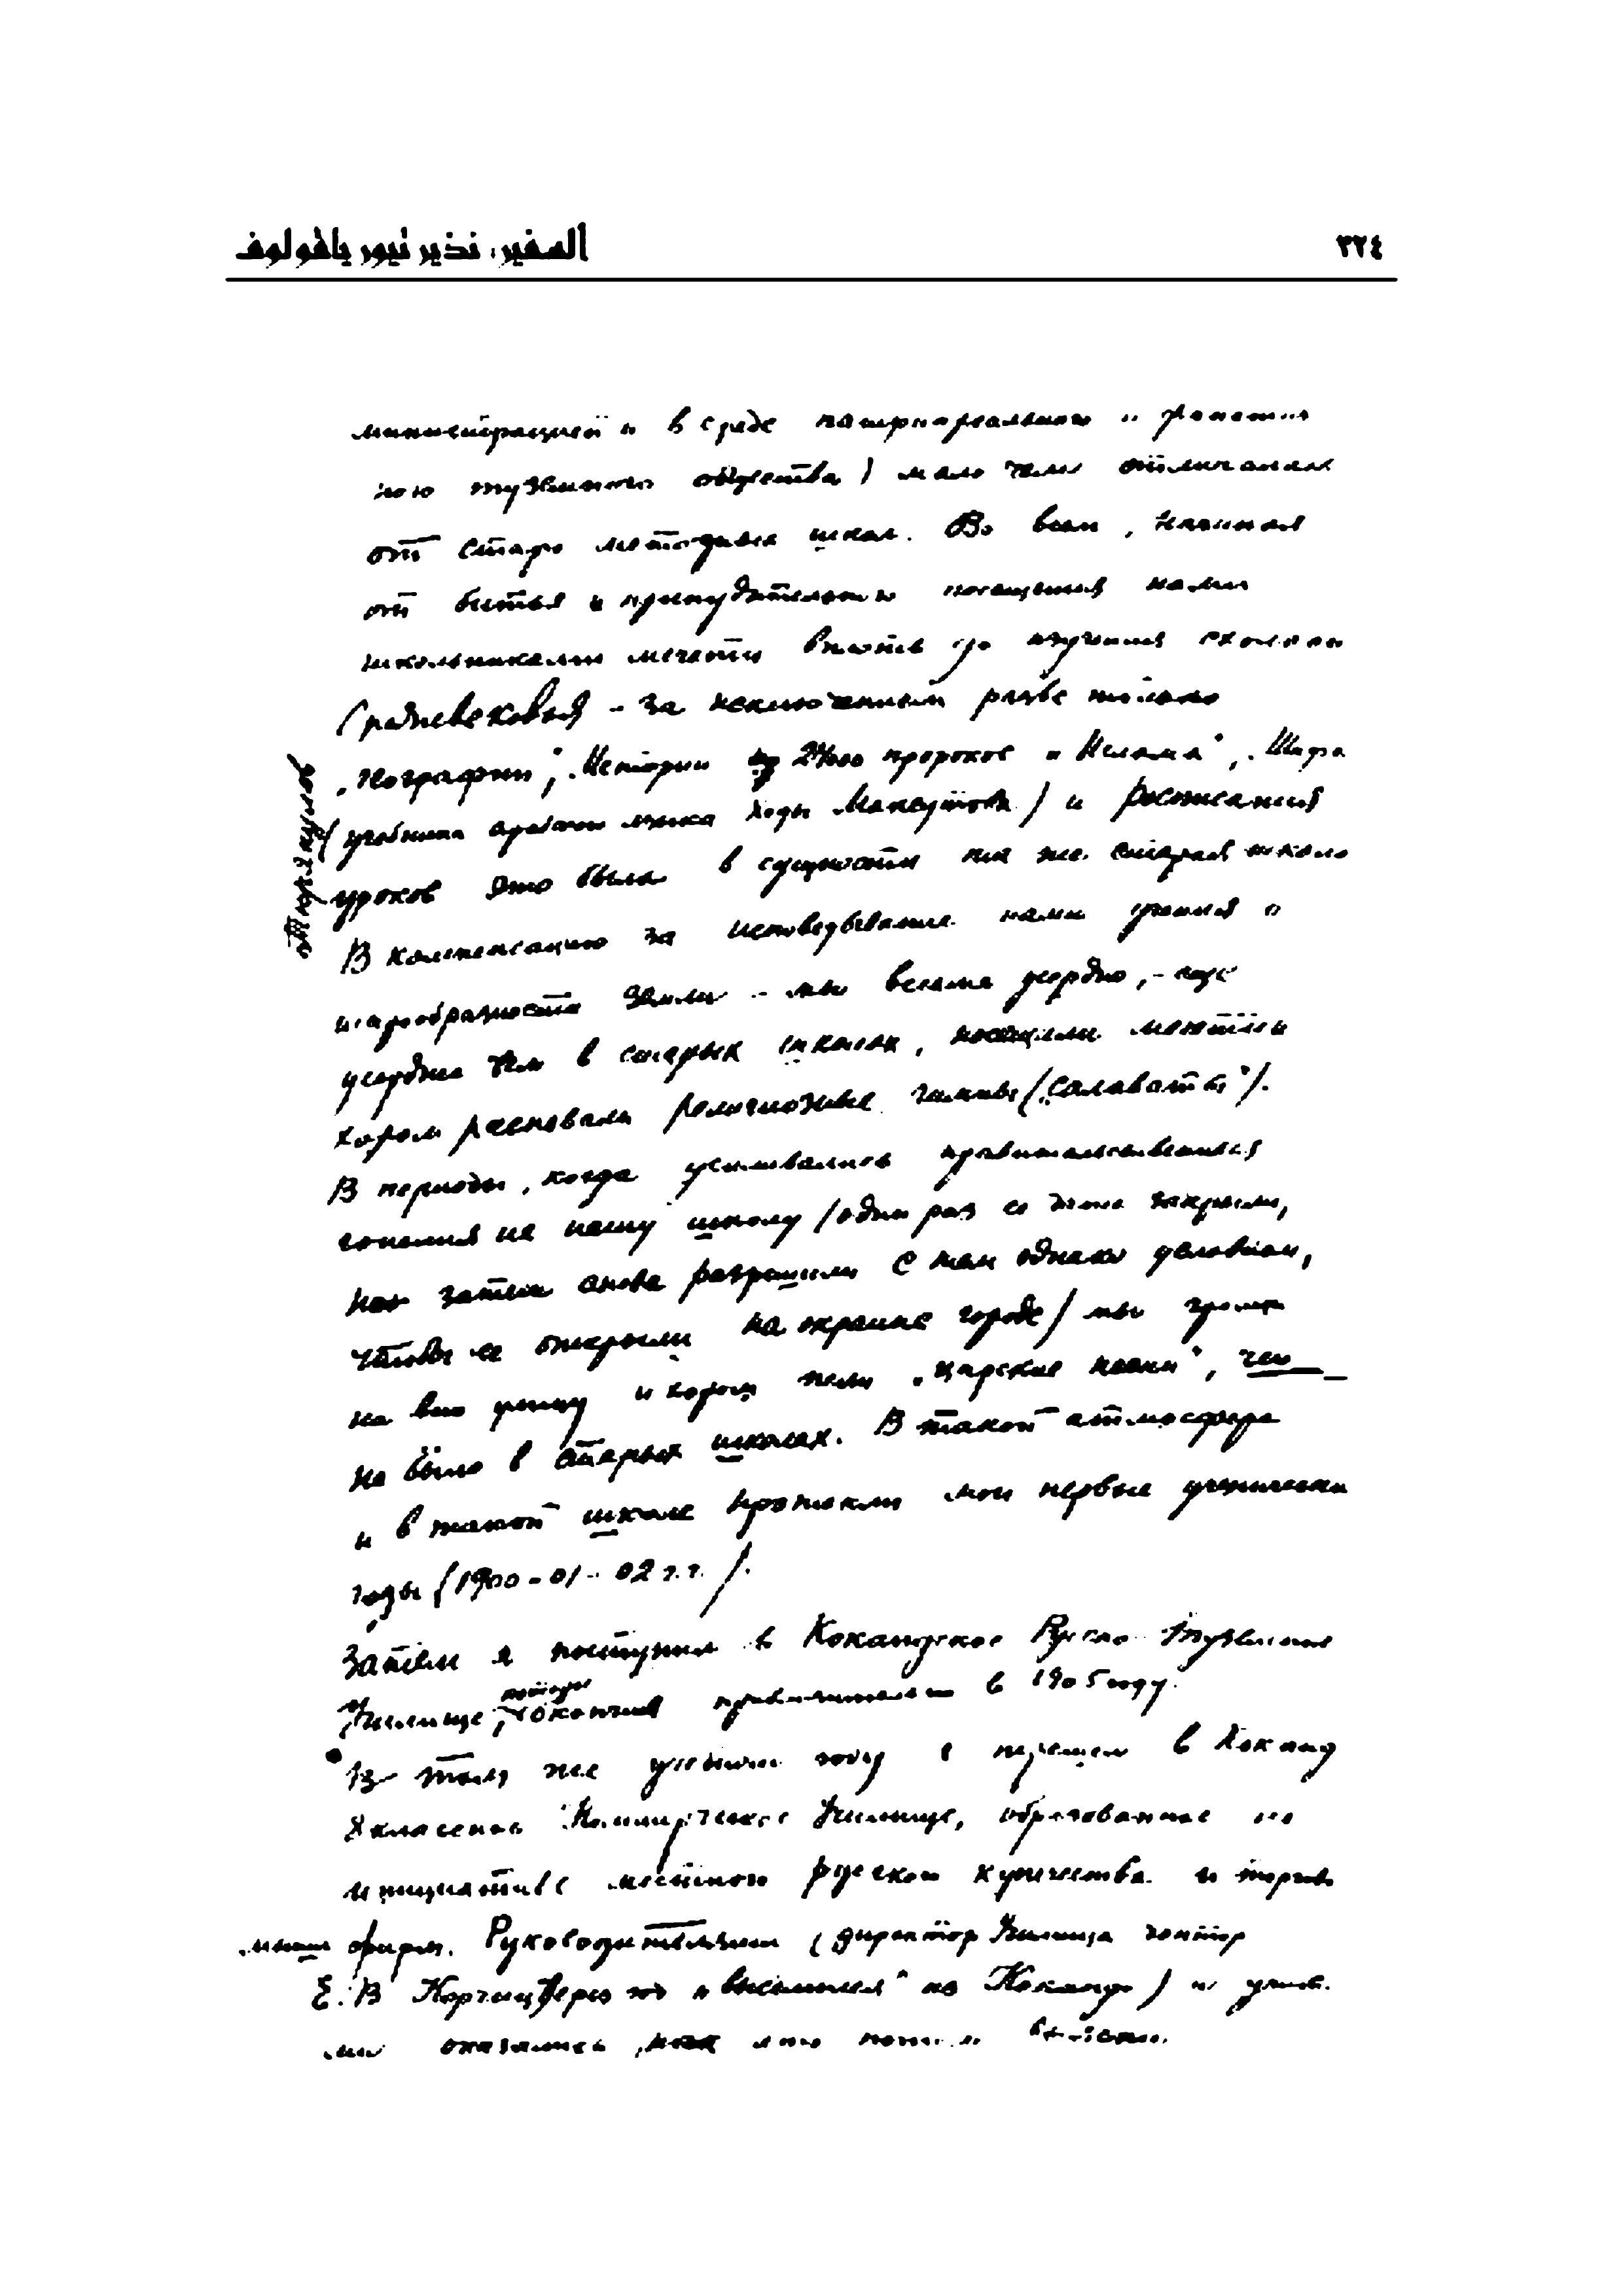 السفير: نذير تيور ياقولوف ٣٢٤
министрацией и в среде патриархального и фанатич
ного туземного общества) мало чем отличалась
от старо методных школ. Во всем, начиная
от битья и принудительного посещения нами
школьниками мечети вплоть до изучения схоласти
(редневековья - за исключением разве только
„географии", „Истории пророков и Ислама", „Шифа
(учебника арабского языка Ходы Максутова) и расписания
уроков это была в сущности та же старая школа
В компенсацию за исповедывание нами учения о
шарообразности Земли - мы весьма усердно, - еще
усерднее чем в старых школах, посещали мечети и
хором распевали религиозные гимны („салаваты").
В периоды, когда усиливались правительственные
гонения на нашу школу (один раз ее даже закрыли,
но затем снова разрешили с тем однако условием,
чтобы ее открыли на окраине города) мы громко
на всю улицу и хором пели „царские песни", чего
не было в старых школах. В такой атмосфере
и в такой школе протекли мои первые ученические
годы (1900-01-02 г.г.).
Затем я поступил в Кокандское Русско Туземное
Училище, которое окончил приблизительно в 1905 году.
В том же учебном году я перешел в Коканд
8 классное Коммерческое Училище, образованное по
инициативе местного русского купечества и торгов
фирм. Руководителями (директор Училища доктор
Е. В. из Коканда) и
ми оказались,